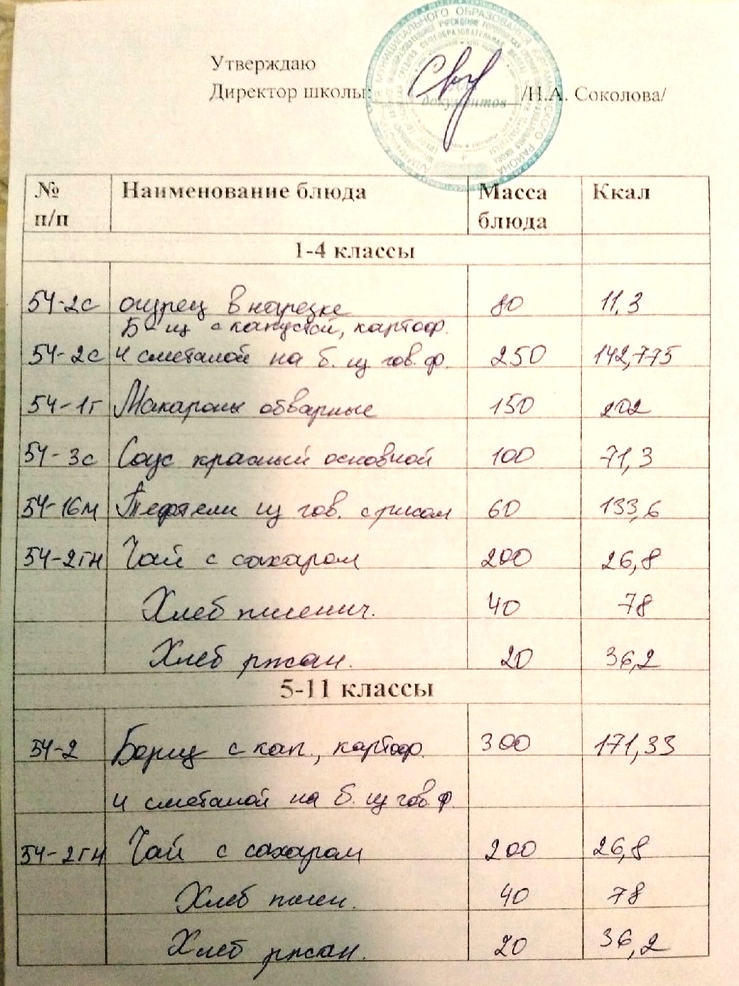 Утверждаю
Директор школы: /Н.А. Соколова/
документов
№ п/п Наименование блюда Масса блюда Ккал
1-4 классы
54-2с огурец в нарезке 80 11,3
Б-щ с капустой, картоф.
54-2с и сметаной на б. из гов. ф. 250 142,775
54-1г Макароны отварные 150 202
54-3с Соус красный основной 100 71,3
54-16м Тефтели из гов. с рисом 60 133,6
54-2гн Чай с сахаром 200 26,8
Хлеб пшенич. 40 78
Хлеб ржан. 20 36,2
5-11 классы
54-2 Борщ с кап., картоф. 300 171,33
и сметаной на б. из гов. ф.
54-2гн Чай с сахаром 200 26,8
Хлеб пшен. 40 78
Хлеб ржан. 20 36,2